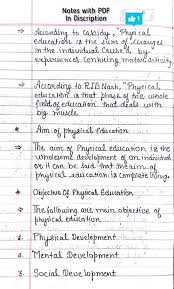 Notes with PDF
In Discription
1
→ According to Cassidy, "Physical
education is the sum of changes
in the individual caused by
experiences, centering motor activity
→ According to R.J.B Nash, "Physical
education is that phase of the whole
field of education that deals with
big muscle
* Aim of physical Education
→ The aim of Physical education is the
wholesome development of an individual
or it can be said that the aim of
physical education is complete living.
* Objective Of Physical Education
→ The following are main objective of
physical education
1. Physical Development
2. Mental Development
3. Social Development